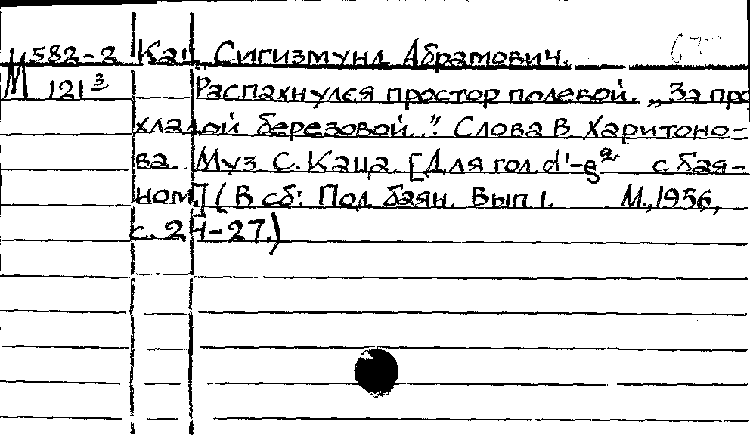 М 582-2 Кац, Сигизмунд Абрамович.
121³ Распахнулся простор полевой. „За про
хладой березовой.." Слова В. Харитоно-
ва. Муз. С. Каца. [Для гол. d¹-g² с бая-
ном] (В сб: Пой, баян. Вып 1. М., 1956,
с. 24-27.)